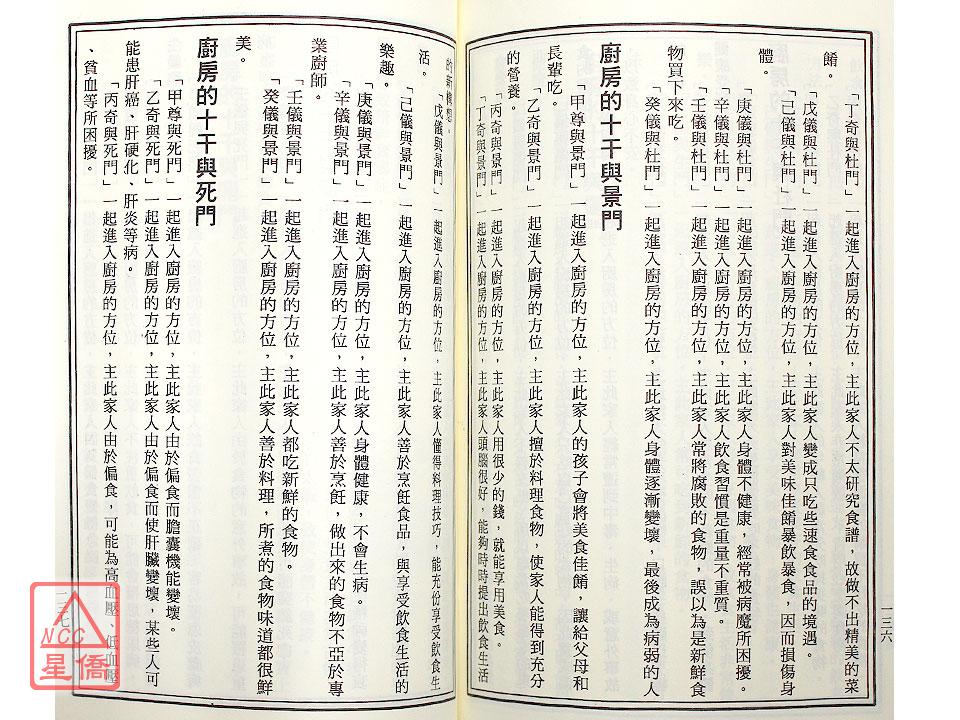 「丁奇與杜門」一起進入廚房的方位，主此家人不太研究食譜，故做不出精美的菜
餚。
「戊儀與杜門」一起進入廚房的方位，主此家人變成只吃些速食食品的境遇。
「己儀與杜門」一起進入廚房的方位，主此家人對美味佳餚暴飲暴食，因而損傷身
體。
「庚儀與杜門」一起進入廚房的方位，主此家人身體不健康，經常被病魔所困擾。
「辛儀與杜門」一起進入廚房的方位，主此家人飲食習慣是重量不重質。
「壬儀與杜門」一起進入廚房的方位，主此家人常將腐敗的食物，誤以為是新鮮食
物買下來吃。
「癸儀與杜門」一起進入廚房的方位，主此家人身體逐漸變壞，最後成為病弱的人
廚房的十干與景門
「甲尊與景門」一起進入廚房的方位，主此家人的孩子會將美食佳餚，讓給父母和
長輩吃。
「乙奇與景門」一起進入廚房的方位，主此家人擅於料理食物，使家人能得到充分
的營養。
「丙奇與景門」一起進入廚房的方位，主此家人用很少的錢，就能享用美食。
「丁奇與景門」一起進入廚房的方位，主此家人頭腦很好，能夠時時提出飲食生活
一三六
的新構想。
「戊儀與景門」一起進入廚房的方位，主此家人懂得料理技巧，能充份享受飲食生
活。
「己儀與景門」一起進入廚房的方位，主此家人善於烹飪食品，與享受飲食生活的
樂趣。
「庚儀與景門」一起進入廚房的方位，主此家人身體健康，不會生病。
「辛儀與景門」一起進入廚房的方位，主此家人善於烹飪，做出來的食物不亞於專
業廚師。
「壬儀與景門」一起進入廚房的方位，主此家人都吃新鮮的食物。
「癸儀與景門」一起進入廚房的方位，主此家人善於料理，所煮的食物味道都很鮮
美。
廚房的十干與死門
「甲尊與死門」一起進入廚房的方位，主此家人由於偏食而膽囊機能變壞。
「乙奇與死門」一起進入廚房的方位，主此家人由於偏食而使肝臟變壞，某些人可
能患肝癌、肝硬化、肝炎等病。
「丙奇與死門」一起進入廚房的方位，主此家人由於偏食，可能為高血壓、低血壓
、貧血等所困擾。
一三七
NCC
星僑